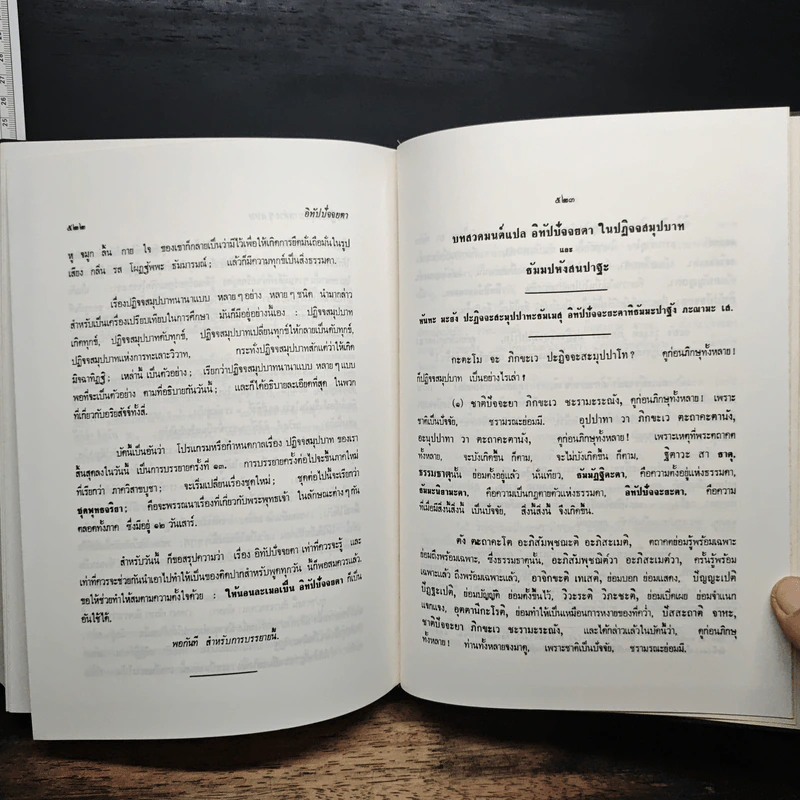 ๕๒๒
อิทัปปัจจยตา
หู จมูก ลิ้น กาย ใจ ของเขาก็กลายเป็นว่ามีไว้เพื่อให้เกิดการยึดมั่นถือมั่นในรูป
เสียง กลิ่น รส โผฏฐัพพะ ธัมมารมณ์; แล้วก็มีความทุกข์เป็นสิ่งธรรมดา.
เรื่องปฏิจจสมุปบาทนานาแบบ หลายๆอย่าง หลายๆชนิด นำมากล่าว
สำหรับเป็นเครื่องเปรียบเทียบในการศึกษา มันก็มีอยู่อย่างนี้เอง : ปฏิจจสมุปบาท
เกิดทุกข์, ปฏิจจสมุปบาทดับทุกข์, ปฏิจจสมุปบาทเปลี่ยนทุกข์ให้กลายเป็นดับทุกข์,
ปฏิจจสมุปบาทแห่งการทะเลาะวิวาท, กระทั่งปฏิจจสมุปบาทสักแต่ว่าให้เกิด
มิจฉาทิฏฐิ; เหล่านี้ เป็นตัวอย่าง; เรียกว่าปฏิจจสมุปบาทนานาแบบ หลายๆแบบ
พอที่จะเป็นตัวอย่าง ตามที่อธิบายกันวันนี้; และก็ได้อธิบายละเอียดที่สุด ในพวก
ที่เกี่ยวกับอริยสัจจ์ทั้งสี่.
บัดนี้เป็นอันว่า โปรแกรมหรือกำหนดกาลเรื่อง ปฏิจจสมุปบาท ของเรา
สิ้นสุดลงในวันนี้ เป็นการบรรยายครั้งที่ ๑๓. การบรรยายครั้งต่อไปจะขึ้นภาคใหม่
ที่เรียกว่า ภาควิสาขบูชา; จะเริ่มเปลี่ยนเรื่องชุดใหม่; ชุดต่อไปนี้จะเรียกว่า
ชุดพุทธจริยา; คือจะพรรณนาเรื่องที่เกี่ยวกับพระพุทธเจ้า ในลักษณะต่างๆกัน
ตลอดทั้งภาค ซึ่งมีอยู่ ๑๒ วันเสาร์.
สำหรับวันนี้ ก็ขอสรุปความว่า เรื่อง อิทัปปัจจยตา เท่าที่ควรจะรู้ และ
เท่าที่ควรจะช่วยกันนำเอาไปทำให้เป็นของติดปากสำหรับพูดทุกวัน นี้ก็พอสมควรแล้ว.
ขอให้ช่วยทำให้สมตามความตั้งใจด้วย : ให้นอนละเมอเป็น อิทัปปัจจยตา ก็เป็น
อันใช้ได้.
พอกันที สำหรับการบรรยายนี้.
๕๒๓
บทสวดมนต์แปล อิทัปปัจจยตา ในปฏิจจสมุปบาท
และ
ธัมมปหังสนปาฐะ
หันทะ มะยัง ปะฏิจจะสะมุปปาทะธัมเมสุ อิทัปปัจจะยะตาทิธัมมะปาฐัง ภะณามะ เส.
กะตะโม จะ ภิกขะเว ปะฏิจจะสะมุปปาโท? ดูก่อนภิกษุทั้งหลาย!
ก็ปฏิจจสมุปบาท เป็นอย่างไรเล่า?
(๑) ชาติปัจจะยา ภิกขะเว ชะรามะระณัง, ดูก่อนภิกษุทั้งหลาย! เพราะ
ชาติเป็นปัจจัย, ชรามรณะย่อมมี. อุปปาทา วา ภิกขะเว ตะถาคะตานัง,
อะนุปปาทา วา ตะถาคะตานัง, ดูก่อนภิกษุทั้งหลาย! เพราะเหตุที่พระตถาคต
ทั้งหลาย, จะบังเกิดขึ้น ก็ตาม, จะไม่บังเกิดขึ้น ก็ตาม, ฐิตาวะ สา ธาตุ,
ธรรมธาตุนั้น ย่อมตั้งอยู่แล้ว นั่นเทียว, ธัมมัฏฐิตะตา, คือความตั้งอยู่แห่งธรรมดา,
ธัมมะนิยามะตา, คือความเป็นกฎตายตัวแห่งธรรมดา, อิทัปปัจจะยะตา, คือความ
ที่เมื่อมีสิ่งนี้สิ่งนี้ เป็นปัจจัย, สิ่งนี้สิ่งนี้ จึงเกิดขึ้น.
ตัง ตะถาคะโต อะภิสัมพุชฌะติ อะภิสะเมติ, ตถาคตย่อมรู้พร้อมเฉพาะ
ย่อมถึงพร้อมเฉพาะ, ซึ่งธรรมธาตุนั้น, อะภิสัมพุชฌิต๎วา อะภิสะเมต๎วา, ครั้นรู้พร้อม
เฉพาะแล้ว ถึงพร้อมเฉพาะแล้ว, อาจิกขะติ เทเสติ, ย่อมบอก ย่อมแสดง, ปัญญะเปติ
ปัฏฐะเปติ, ย่อมบัญญัติ ย่อมตั้งขึ้นไว้, วิวะระติ วิภะชะติ, ย่อมเปิดเผย ย่อมจำแนก
แจกแจง, อุตตานีกะโรติ, ย่อมทำให้เป็นเหมือนการหงายของที่คว่ำ, ปัสสะถาติ จาหะ,
ชาติปัจจะยา ภิกขะเว ชะรามะระณัง, และได้กล่าวแล้วในบัดนี้ว่า, ดูก่อนภิกษุ
ทั้งหลาย! ท่านทั้งหลายจงมาดู, เพราะชาติเป็นปัจจัย, ชรามรณะย่อมมี.